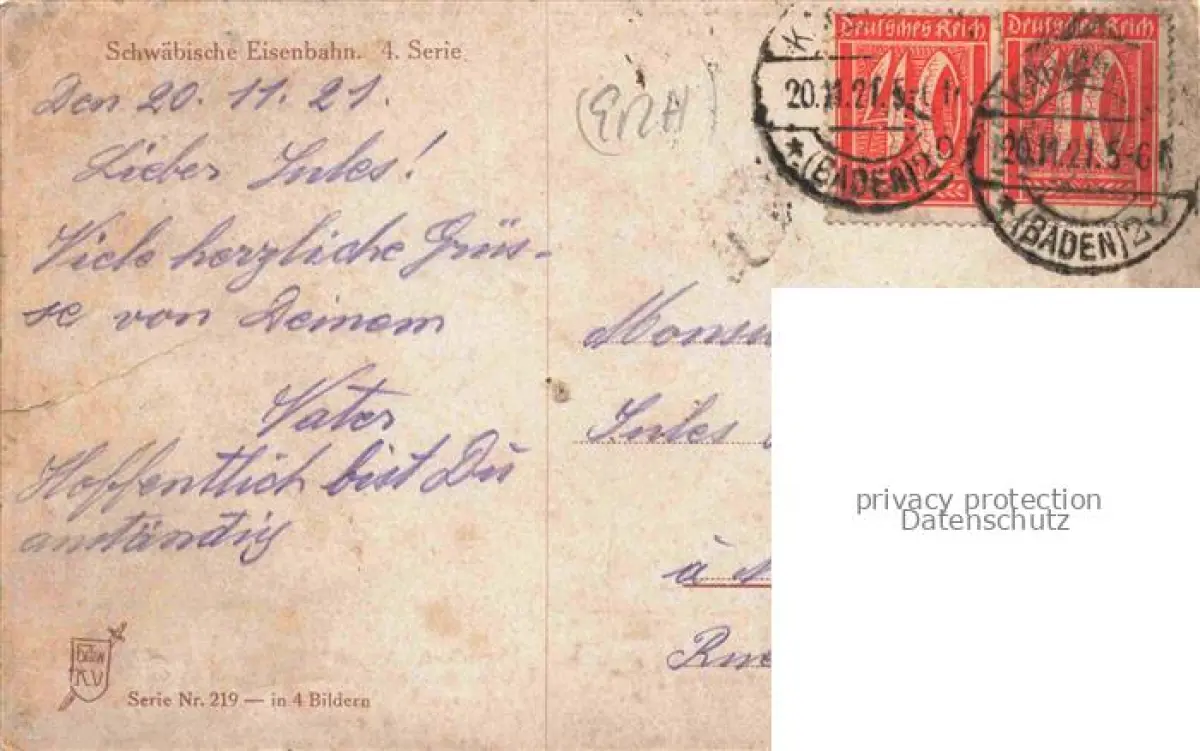 Schwäbische Eisenbahn. 4. Serie
Den 20. 11. 21.
Lieber Jules!
Viele herzliche Grüs-
se von Deinem
Vater
Hoffentlich bist Du
anständig
Serie Nr. 219 — in 4 Bildern
K.V
Deutsches Reich
40
Deutsches Reich
40
20.11.21. 5-6 N
(BADEN) 2
20.11.21. 5-6 N
(BADEN) 2
Jules
à
Rue
privacy protection
Datenschutz